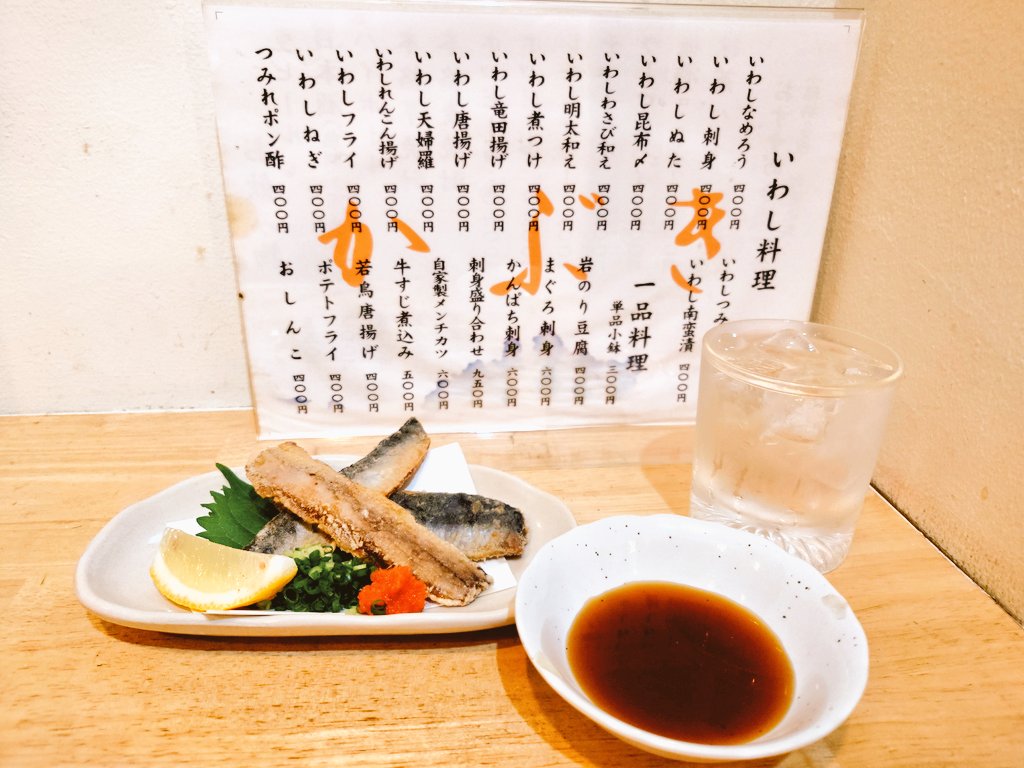 いわし料理
いわしなめろう 四〇〇円
いわし刺身 四〇〇円
いわしぬた 四〇〇円
いわし昆布〆 四〇〇円
いわしわさび和え 四〇〇円
いわし明太和え 四〇〇円
いわし煮つけ 四〇〇円
いわし竜田揚げ 四〇〇円
いわし唐揚げ 四〇〇円
いわし天婦羅 四〇〇円
いわしれんこん揚げ 四〇〇円
いわしフライ 四〇〇円
いわしねぎ 四〇〇円
つみれポン酢 四〇〇円
いわしつみ
いわし南蛮漬 四〇〇円
一品料理
単品小鉢 三〇〇円
岩のり豆腐 四〇〇円
まぐろ刺身 六〇〇円
かんぱち刺身 六〇〇円
刺身盛り合わせ 九五〇円
自家製メンチカツ 六〇〇円
牛すじ煮込み 五〇〇円
若鳥唐揚げ 四〇〇円
ポテトフライ 四〇〇円
おしんこ 四〇〇円
かぶき